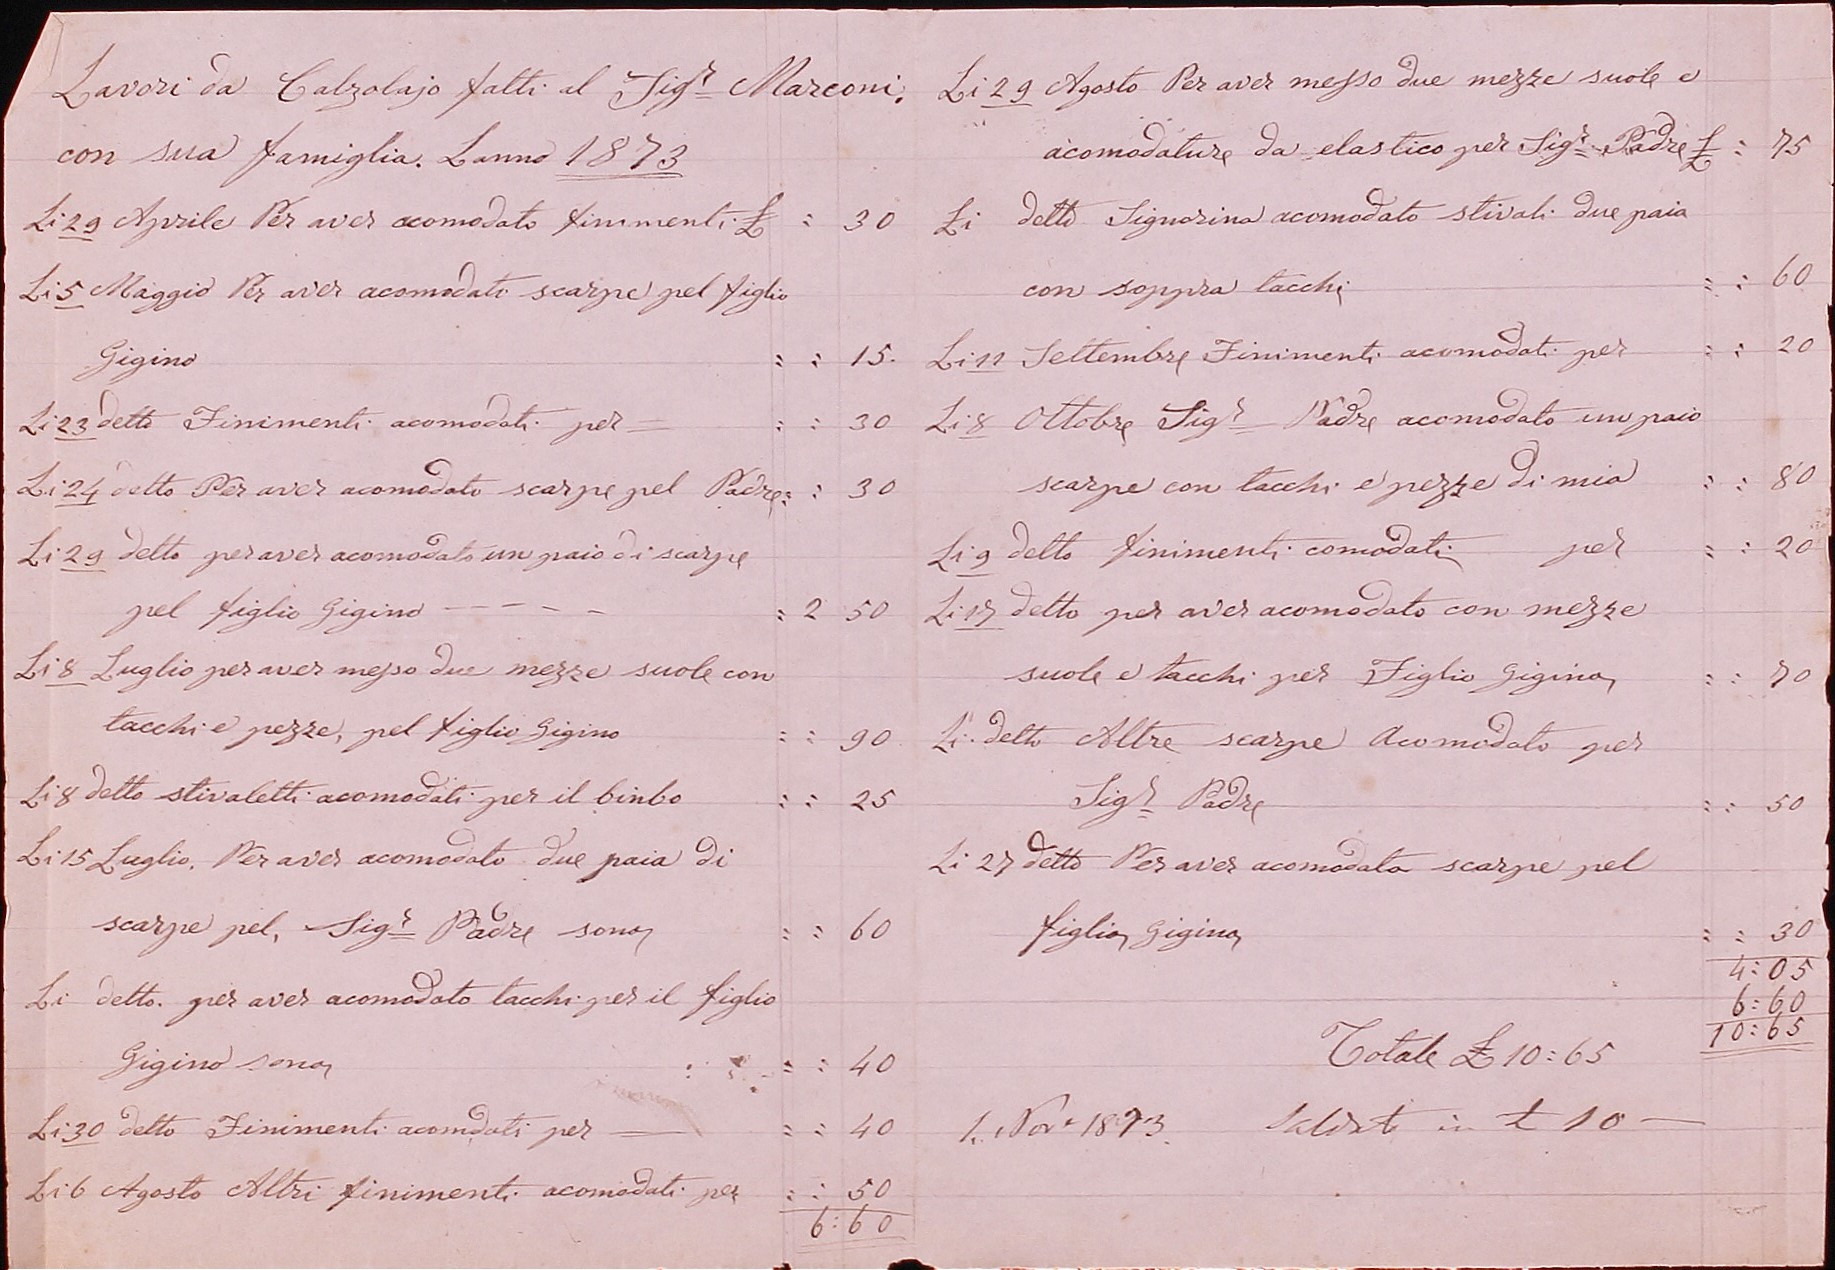 Lavori da Calzolajo fatti al Sigr Marconi.
con sua famiglia. Lanno 1873
Li 29 Aprile Per aver acomodato finimenti £ : 30
Li 5 Maggio Per aver acomodato scarpe pel figlio
Gigino : : 15.
Li 23 detto Finimenti acomodati per — : : 30
Li 24 detto Per aver acomodato scarpe pel Padre : : 30
Li 29 detto per aver acomodato un paio di scarpe
pel figlio Gigino - - - - - : 2 50
Li 8 Luglio per aver messo due mezze suole con
tacchi e pezze, pel figlio Gigino : : 90
Li 8 detto stivaletti acomodati per il binbo : : 25
Li 15 Luglio. Per aver acomodato due paia di
scarpe pel, Sigr Padre sono : : 60
Li detto. per aver acomodato tacchi per il figlio
Gigino sono : : 40
Li 30 detto Finimenti acomodati per — : : 40
Li 6 Agosto Altri finimenti acomodati per : : 50
6:60
Li 29 Agosto Per aver messo due mezze suole e
acomodature da elastico per Sigr Padre £ : 75
Li detto Signorina acomodato stivali due paia
con soppra tacchi : : 60
Li 11 Settembre Finimenti acomodati per : : 20
Li 8 Ottobre Sigr Padre acomodato un paio
scarpe con tacchi e pezze di mio : : 80
Li 9 detto finimenti comodati per : : 20
Li 17 detto per aver acomodato con mezze
suole e tacchi per Figlio Gigino : : 70
Li. detto Altre scarpe Acomodato per
Sigr Padre : : 50
Li 27 detto Per aver acomodato scarpe pel
figlio Gigino : : 30
4:05
6:60
10:65
Totale £ 10:65
1. Nove 1873. Saldato in £ 10 —